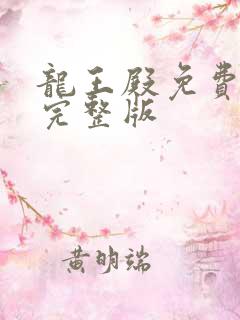 龍王殿免費
完整版
黄明端